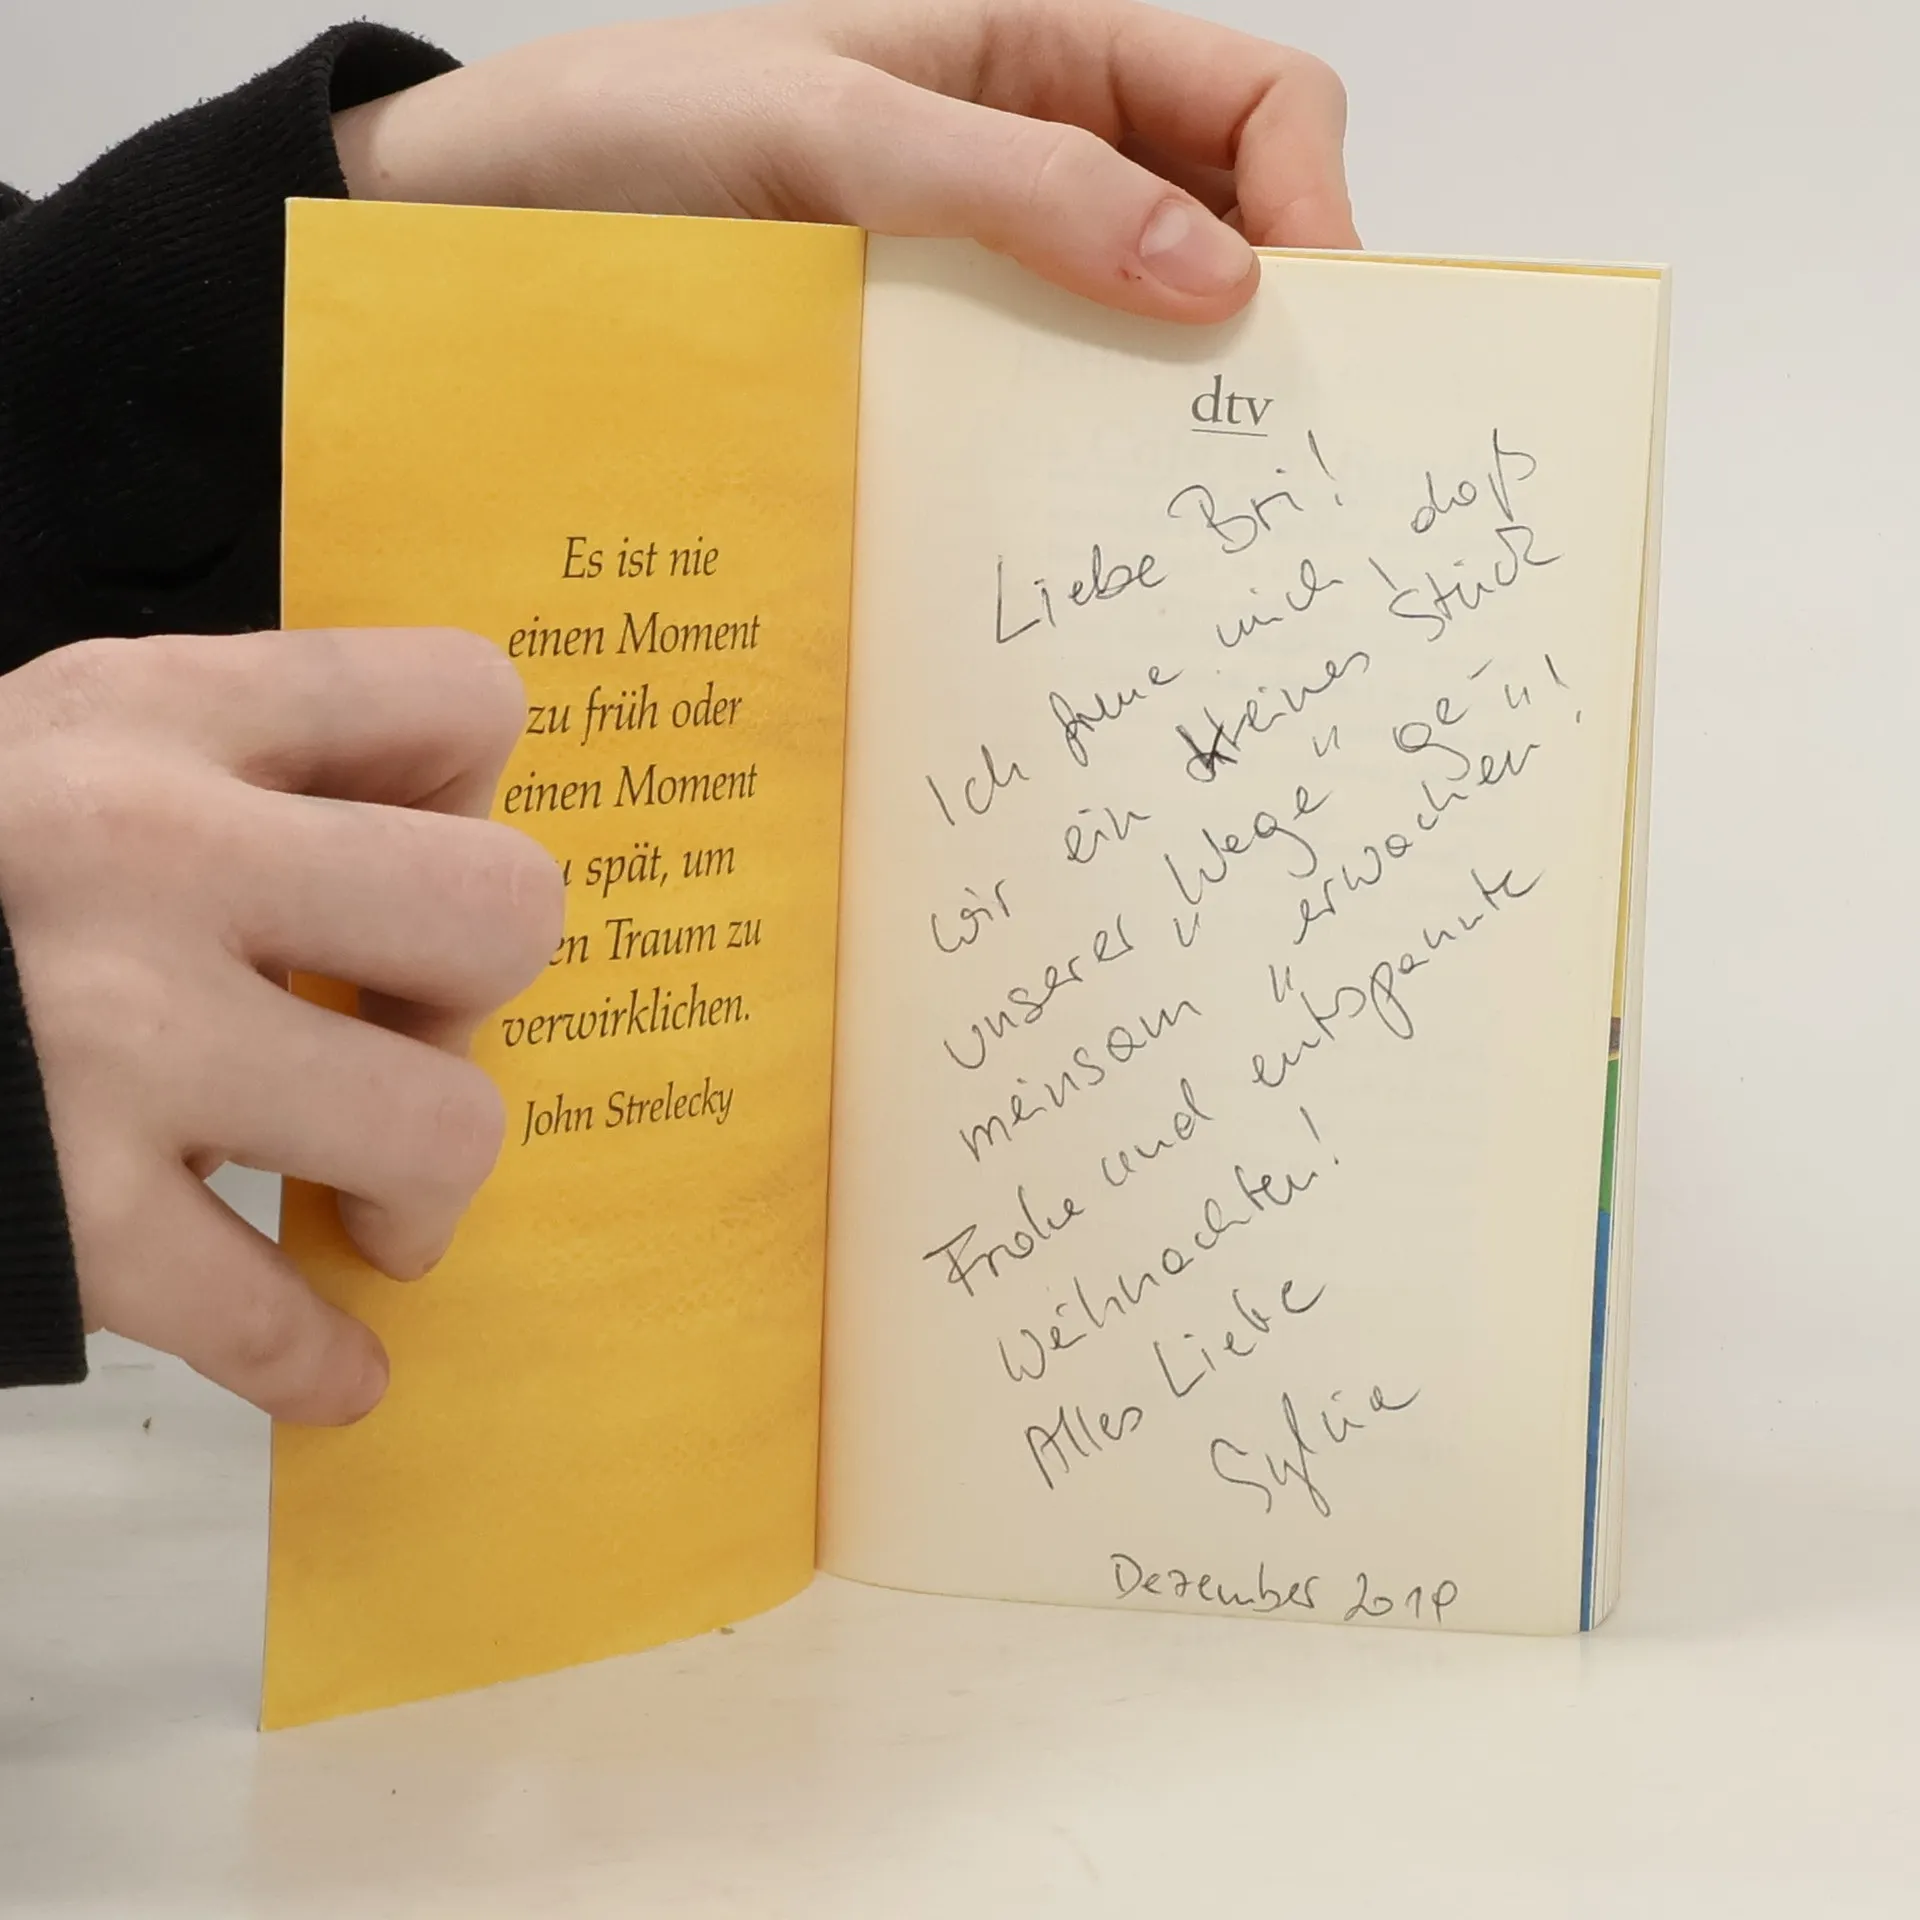 Es ist nie
einen Moment
zu früh oder
einen Moment
spät, um
Traum zu
verwirklichen.
John Strelecky
dtv
Liebe Bri!
Ich freue mich, daß
wir ein kleines Stück
unserer "Wege" ge-
meinsam "erwachen"!
Frohe und entspannte
Weihnachten!
Alles Liebe
Sylvia
Dezember